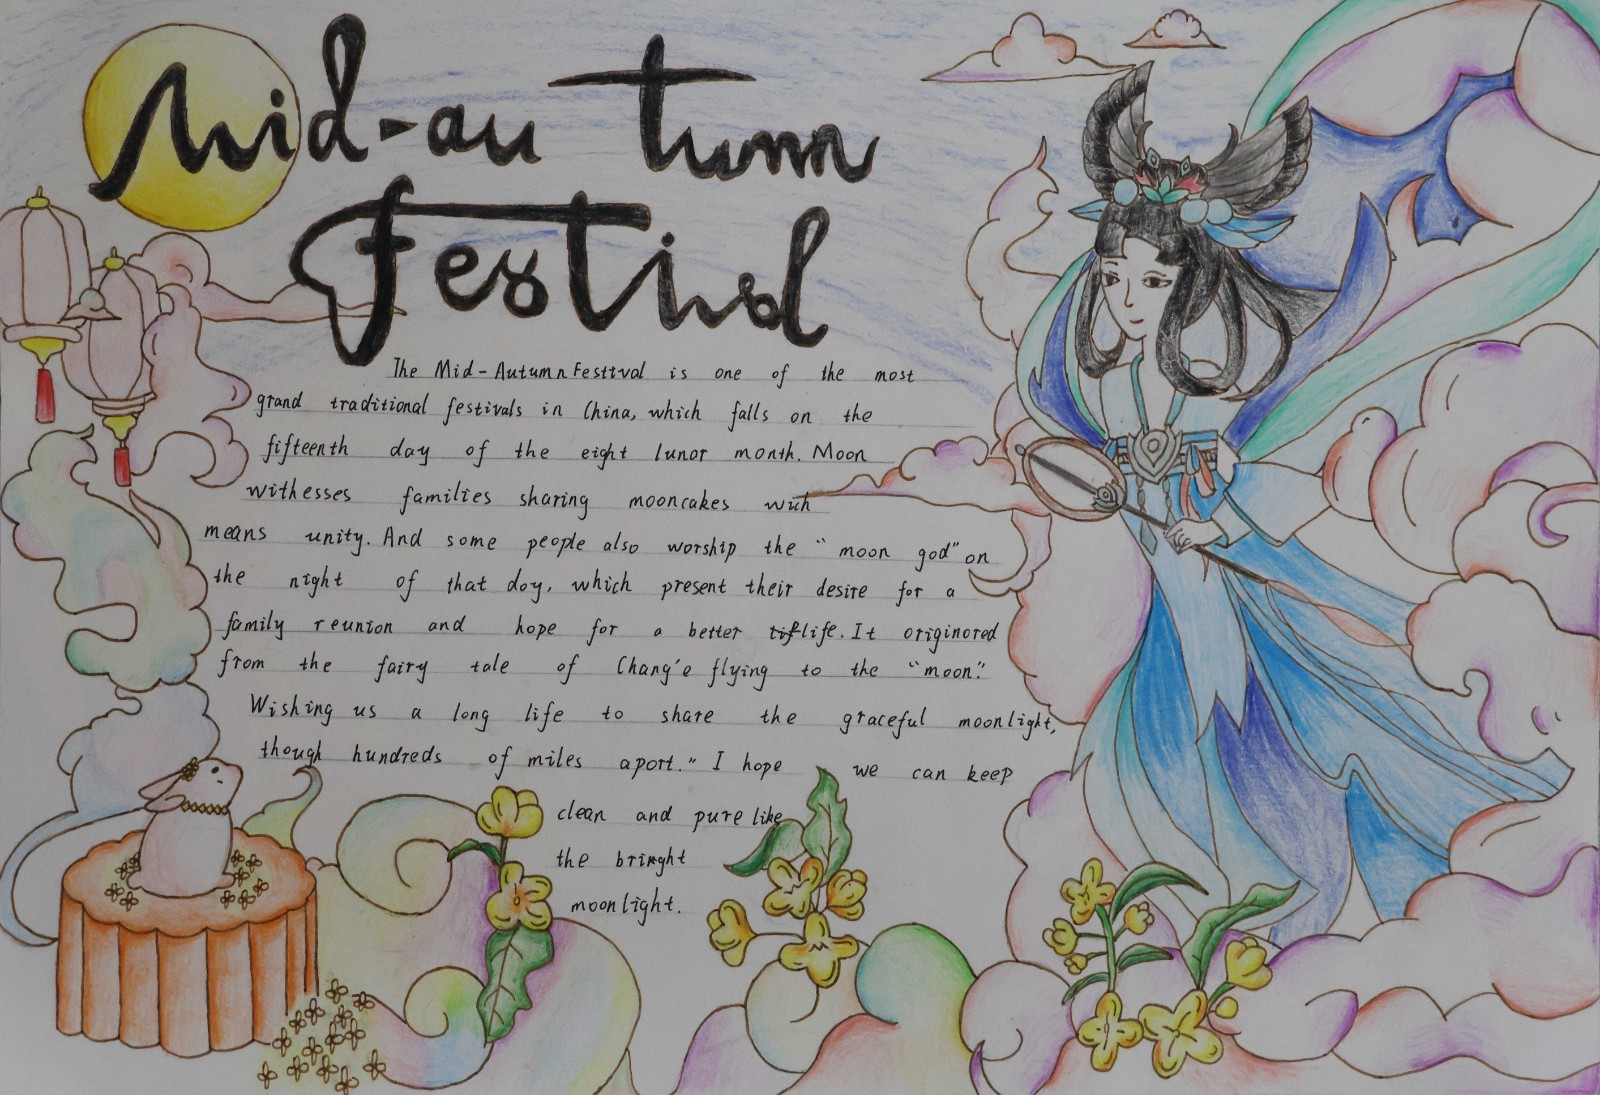 Mid-autumn
Festival
The Mid-Autumn Festival is one of the most
grand traditional festivals in China, which falls on the
fifteenth day of the eight lunar month. Moon
withesses families sharing mooncakes wich
means unity. And some people also worship the "moon god" on
the night of that day, which present their desire for a
family reunion and hope for a better life. It originored
from the fairy tale of Chang'e flying to the "moon."
Wishing us a long life to share the graceful moonlight,
though hundreds of miles apart." I hope we can keep
clean and pure like
the bright
moonlight.